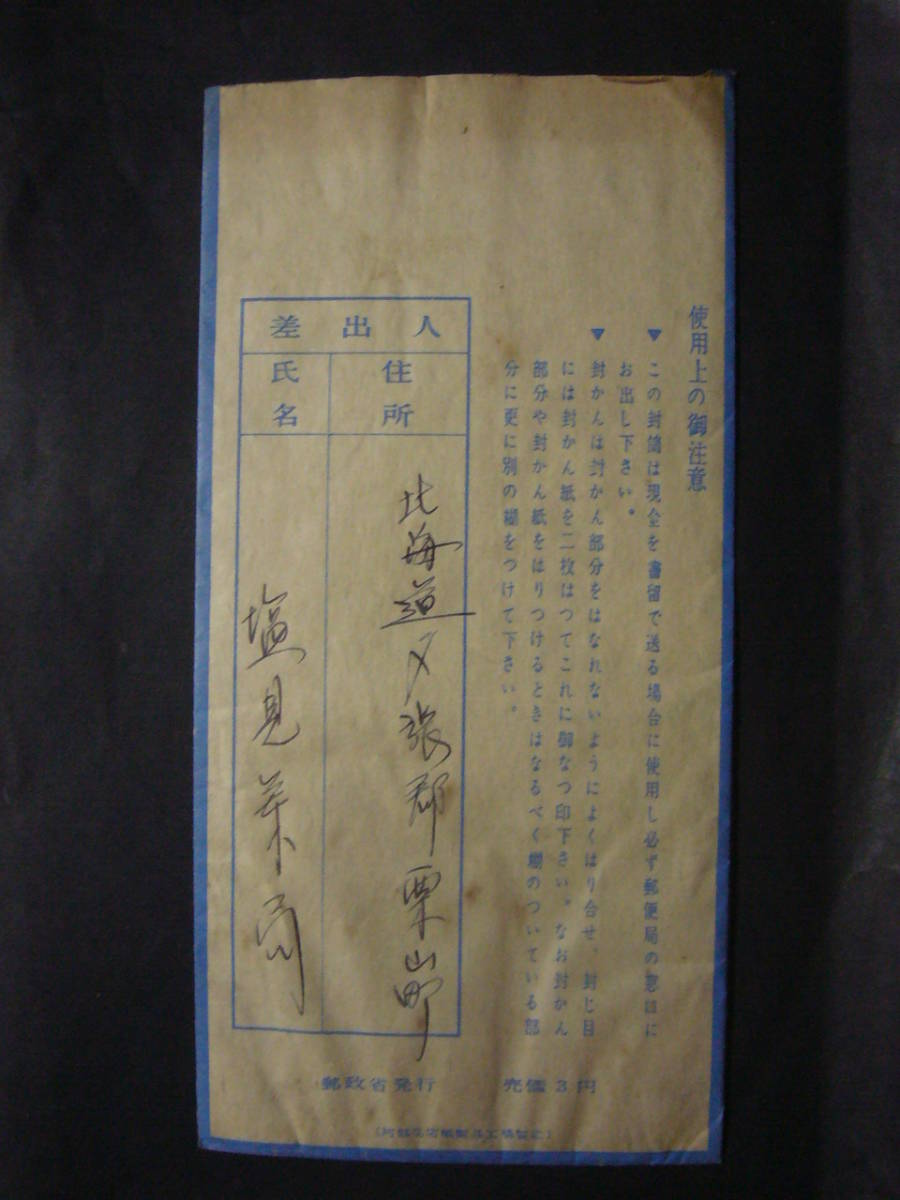 使用上の御注意
▼この封筒は現金を書留で送る場合に使用し必ず郵便局の窓口に
お出し下さい。
▼封かんは封かん部分をはなれないようによくはり合せ、封じ目
には封かん紙を二枚はつてこれに御なつ印下さい。なお封かん
部分や封かん紙をはりつけるときはなるべく糊のついている部
分に更に別の糊をつけて下さい。
差出人
住所
北海道夕張郡栗山町
氏名
塩見
郵政省発行
売価3円